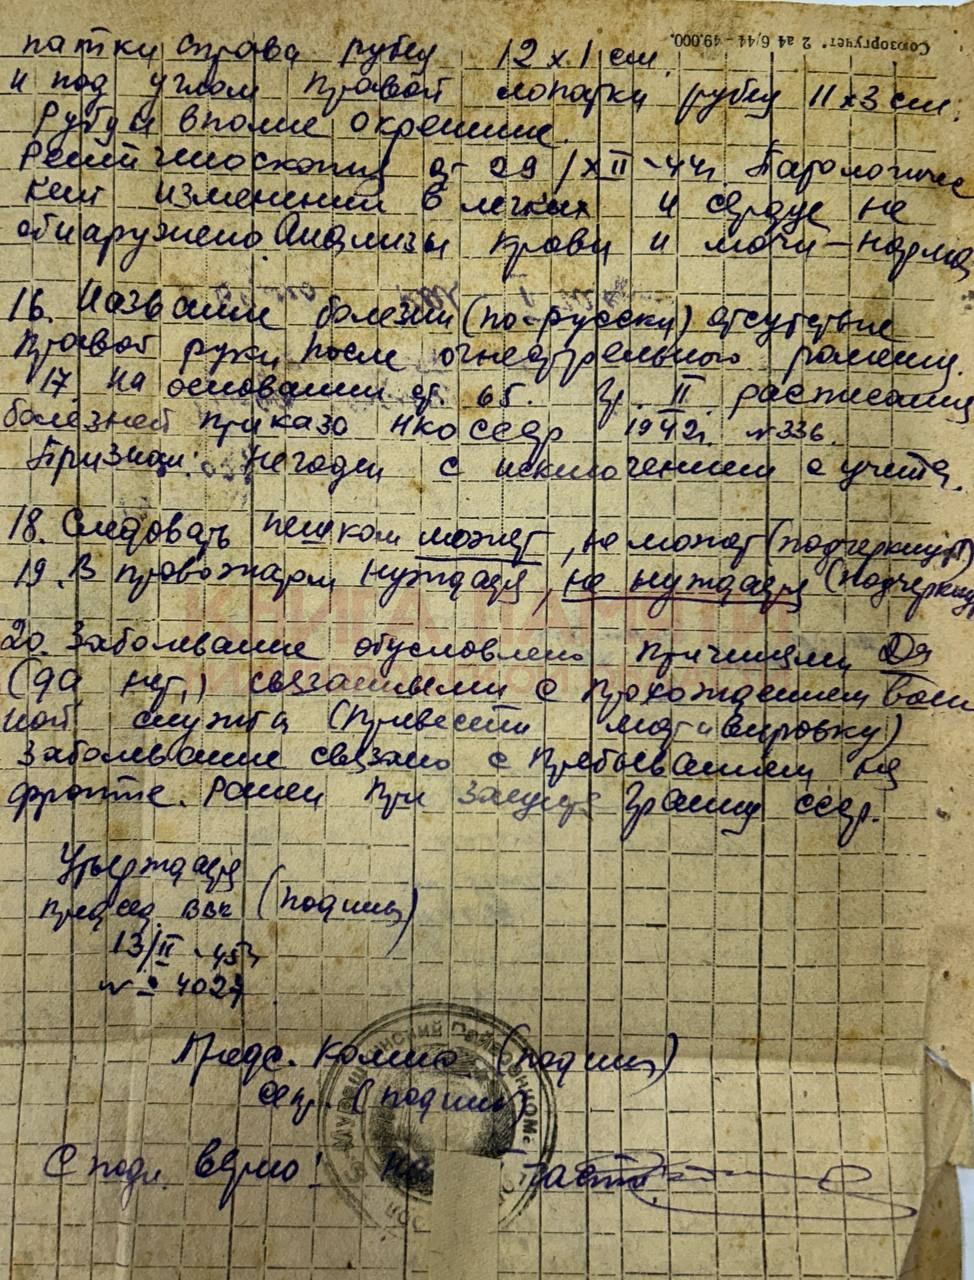 Союзоргучет. 2 а4 6/44 - 49.000.
патки справа рубец 12 х 1 см.
и под углом правой лопатки рубец 11 х 3 см.
Рубцы вполне окрепшие.
Рентгеноскопия от 29/XII-44г Патологичес
кий изменений в легких и сердце не
обнаружено. Анализы крови и мочи - норма
16. Название болезни (по-русски) отсутствие
правой руки после огнестрельного ранения.
17 На основании ст. 65. гр. II расписания
болезней приказа НКО СССР 1942г. № 336.
Признан: Негоден с исключением с учета.
18. Следовать пешком может, не может (подчеркнуть)
19. В провожатом нуждается, не нуждается (подчеркнуть
КНИГА ПАМЯТИ
20. Заболевание обусловлено причинами Да
(да нет,) связанными с прохождением воен
ной службы (привести мотивировку)
Заболевание связано с пребыванием на
фронте. Ранен при защите границ СССР.
Утверждается
председ. ВВК (подпись)
13/II-45г
№ 4027
Предс. Комис (подпись)
секр. (подпись)
С подл. верно! части